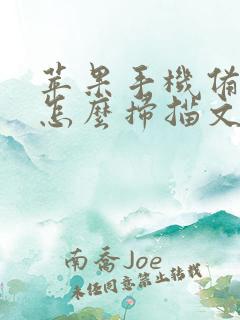 苹果手機備
怎麼掃描文
南喬Joe
未经同意禁止转载